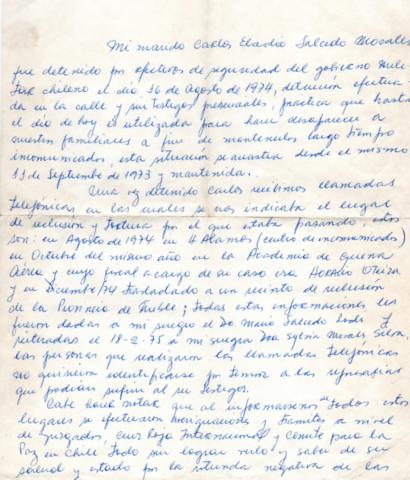 Mi marido Carlos Eladio Salcedo Morales
fue detenido por efectivos de seguridad del gobierno mili-
tar chileno el día 16 de Agosto de 1974, detención efectua-
da en la calle y sin testigos presenciales, práctica que hasta
el día de hoy es utilizada para hacer desaparecer a
nuestros familiares a fin de mantenerlos largo tiempo
incomunicados, esta situación se arrastra desde el mismo
11 de Septiembre de 1973 y mantenida.
Una vez detenido Carlos recibimos llamadas
telefónicas en las cuales se nos indicaba el lugar
de reclusión y tortura por el que estaba pasando, estos
son: en Agosto de 1974 en 4 Alamos (centro de incomunicados)
en Octubre del mismo año en la Academia de Guerra
Aérea y cuyo fiscal a cargo de su caso era Horacio Oteiza
y en Diciembre/74 trasladado a un recinto de reclusión
de la Provincia de Ñuble; todas estas informaciones les
fueron dadas a mi suegro el Dn Mario Salcedo y
reiteradas el 18-2-75 a mi suegra Dña Sylvia Morales Silva,
las personas que realizaron las llamadas telefónicas
no quisieron identificarse por temor a las represalias
que podían sufrir al ser testigos.
Cabe hacer notar que al informarnos de todos estos
lugares se efectuaron averiguaciones y trámites a nivel
de juzgados, Cruz Roja Internacional y Comité para la
Paz en Chile todo sin lograr verlo y saber de su
salud y estado por la rotunda negativa de las